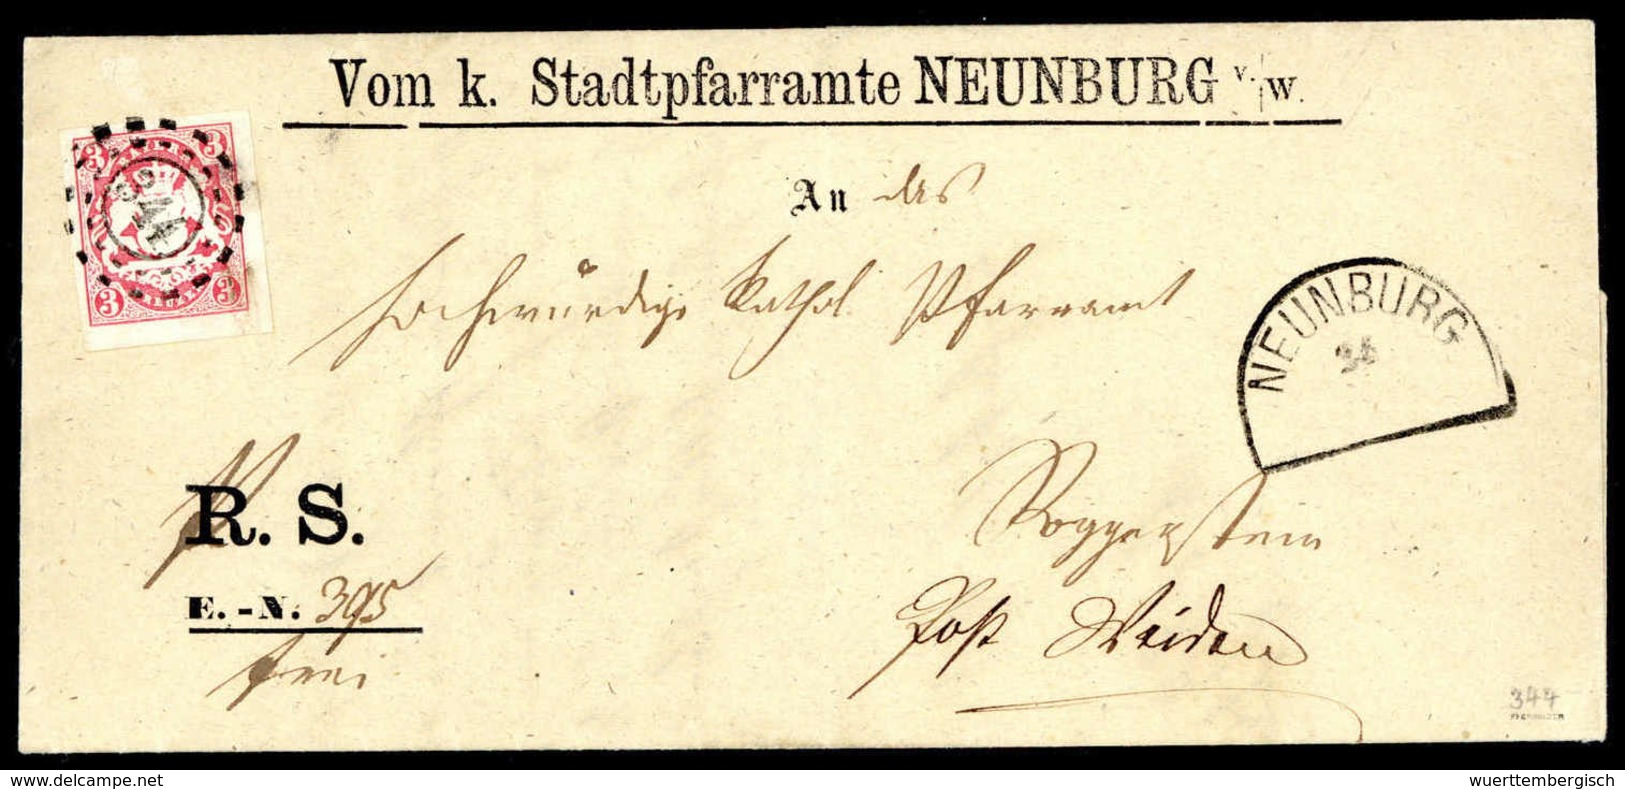 Vom k. Stadtpfarramte NEUNBURG v./W.
3 3
344
3 3
An das
hochwürdige kathol. Pfarramt
NEUNBURG
R. S.
Roggenstein
E.-N. 395
Post Weiden
frei
344
PFENNINGER
delcampe.net
wuerttembergisch